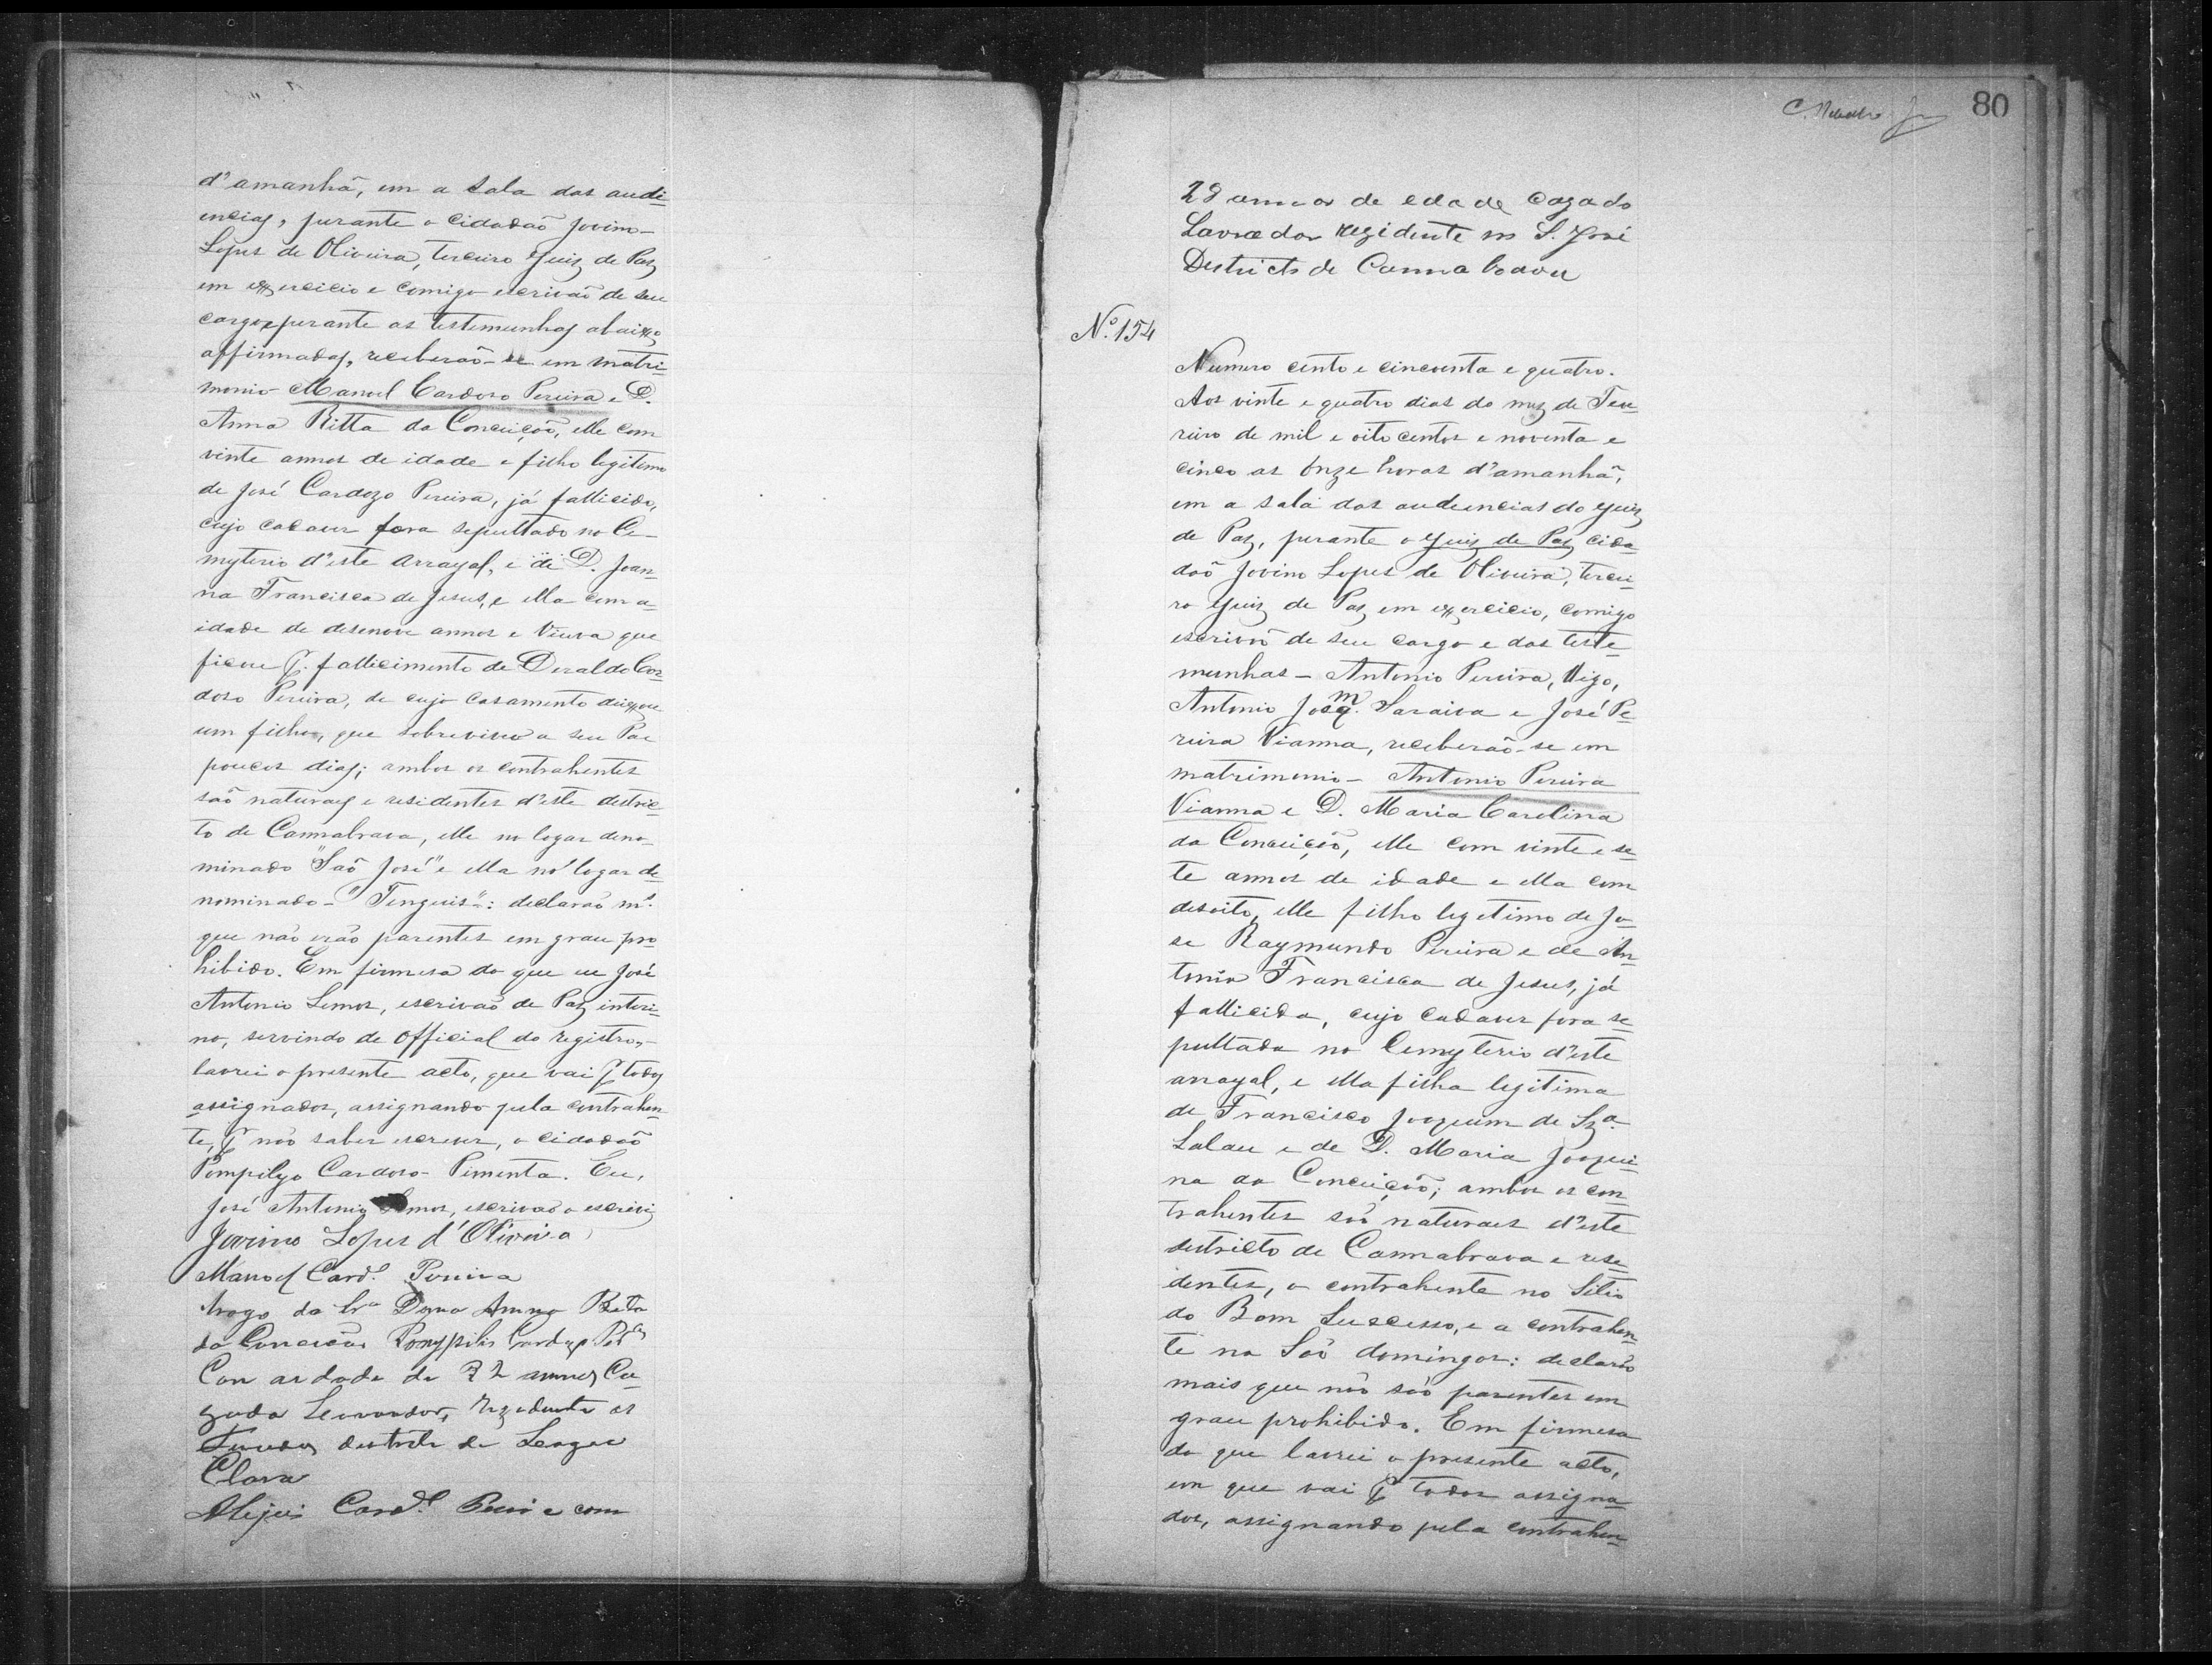 d'amanhã, em a sala das audi-
encias, perante o cidadão Jovino
Lopes de Oliveira, terceiro Juiz de Paz
em exercicio e comigo escrivão de seu
cargo, perante as testemunhas abaixo
affirmadas, receberão-se em matri-
monio Manoel Cardoso Pereira e D.
Anna Ritta da Conceição, elle com
vinte annos de idade e filho legitimo
de José Cardozo Pereira, já fallicido,
cujo cadaver fora sepultado no Ce-
myterio d'este Arrayal, e de D. Joan-
na Francisca de Jesus, e ella com a
idade de desenove annos e Viuva que
ficou p. fallicimento de Deraldo Car-
doso Pereira, de cujo casamento deixou
um filho, que sobreviveo a seu Pae
poucos dias; ambos os contrahentes
são naturaes e residentes d'este distric-
to de Cannabrava, elle no logar deno-
minado "São José" e ella no logar de-
nominado - "Tinguis": declarão m.s
que não erão parentes em grau pro
hibido. Em firmesa do que eu José
Antonio Lemos, escrivão de Paz interi-
no, servindo de official do registro,
lavrei o presente acto, que vai p. todos
assignados, assignando pela contrahen-
te, p. não saber escrever, o cidadão
Pompilyo Cardoso Pimenta. Eu,
José Antonio Lemos, escrivão o escrevi
Jovino Lopes d'Oliveira
Manoel Card.º Pereira
Arogo da Sr.ª Dona Anna Rita
da Conceicão Pompilio
Com aidade de annos Ca-
zado Lavrador, rezedente
destrito de Lagoa
Clara
Alejos Card.º com
C. Jr 80
28 annos de edade cazado
Lavrador rezidente no S. José
Destricto de Cannabrava
Nº. 154
Numero cento e cincoenta e quatro.
Aos vinte e quatro dias do mez de Feve-
reiro de mil e oito centos e noventa e
cinco as onze horas d'amanhã,
em a sala das audiencias do Juiz
de Paz, perante o Juiz de Paz cida-
dão Jovino Lopes de Oliveira, tercei-
ro Juiz de Paz em exercicio, comigo
escrivão de seu cargo e das teste-
munhas - Antonio Pereira, digo,
Antonio Joaq.m Saraiva e José Pe-
reira Vianna, receberão-se em
matrimonio - Antonio Pereira
Vianna e D. Maria Carolina
da Conceição, elle com vinte e se-
te annos de idade e ella com
desoito, elle filho legetimo de Jo-
se Raymundo Pereira e de An-
tonia Francisca de Jesus, já
fallicida, cujo cadaver fora se-
pultada no Cemyterio d'este
arrayal, e ella filha legitima
de Francisco Joaquim de Sz.ª
Lalau e de D. Maria Joaqui-
na da Conceição; ambos os con-
trahentes são naturaes d'este
destricto de Cannabrava e rese-
dentes, o contrahente no Sitio
do Bom Successo, e a contrahen-
te na São domingos: declarão
mais que não são parentes em
grau prohibido. Em firmesa
do que lavrei o presente acto,
em que vai p. todos assigna-
dos, assignando pela contrahen-